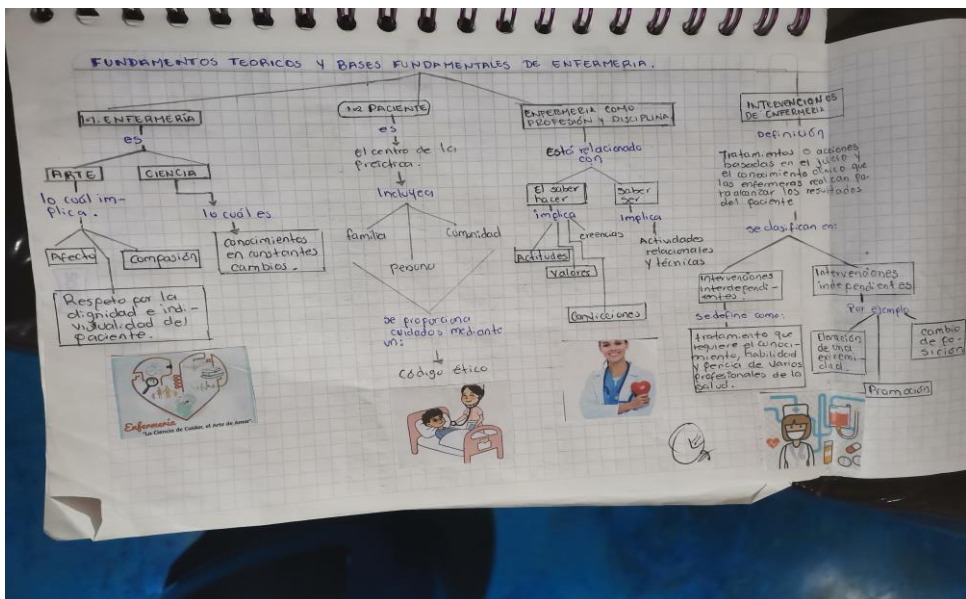 FUNDAMENTOS TEORICOS Y BASES FUNDAMENTALES DE ENFERMERIA.
1.1. ENFERMERÍA
es
ARTE
CIENCIA
lo cuál im-
plica.
Afecto
Compasión
Respeto por la
dignidad e indi-
vidualidad del
paciente.
lo cuál es
conocimientos
en constantes
cambios.
Enfermería
"La Ciencia de Cuidar, el Arte de Amar"
1.2 PACIENTE
es
el centro de la
práctica.
Incluyea
familia
Persona
Comunidad
se proporciona
cuidados mediante
un:
código ético
ENFERMERIA COMO
PROFESIÓN Y DISCIPLINA
Está relacionado
con
El saber
hacer
implica
Actitudes
Valores
creencias
Convicciones
Saber
ser
Implica
Actividades
relacionales
y técnicas
INTERVENCIONES
DE ENFERMERIA
Definición
Tratamientos o acciones
basadas en el juicio y
el conocimiento clínico que
las enfermeras realizan pa-
ra alcanzar los resultados
del paciente
se clasifican en:
Intervenciones
interdependi-
entes.
Se define como:
tratamiento que
requiere el conoci-
miento, habilidad
y pericia de varios
profesionales de la
salud.
Intervenciones
independientes
Por ejemplo
Elevación
de una
extremi-
dad.
Promoción
cambio
de po-
sición